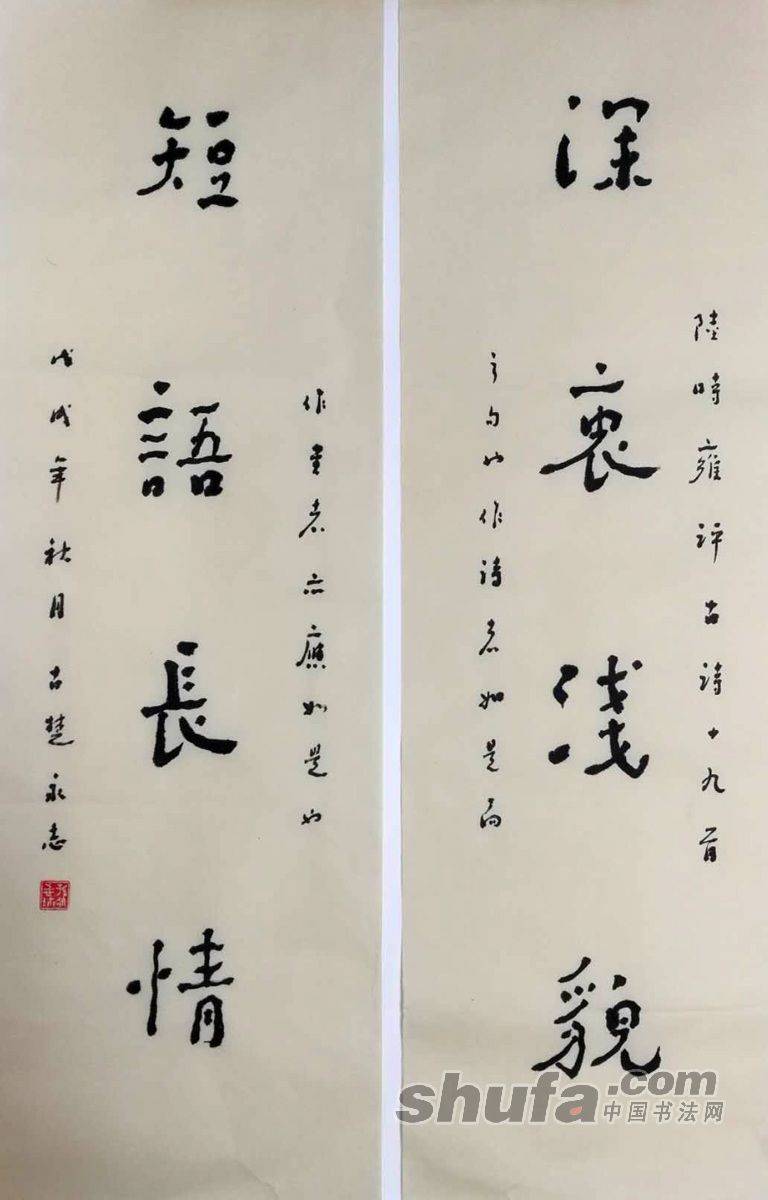 深衷淺貌
陸時雍評古詩十九首
之句也作詩者如是而
短語長情
作書者亦應如是也
戊戌年秋月古楚永志
shufa.com
中国书法网